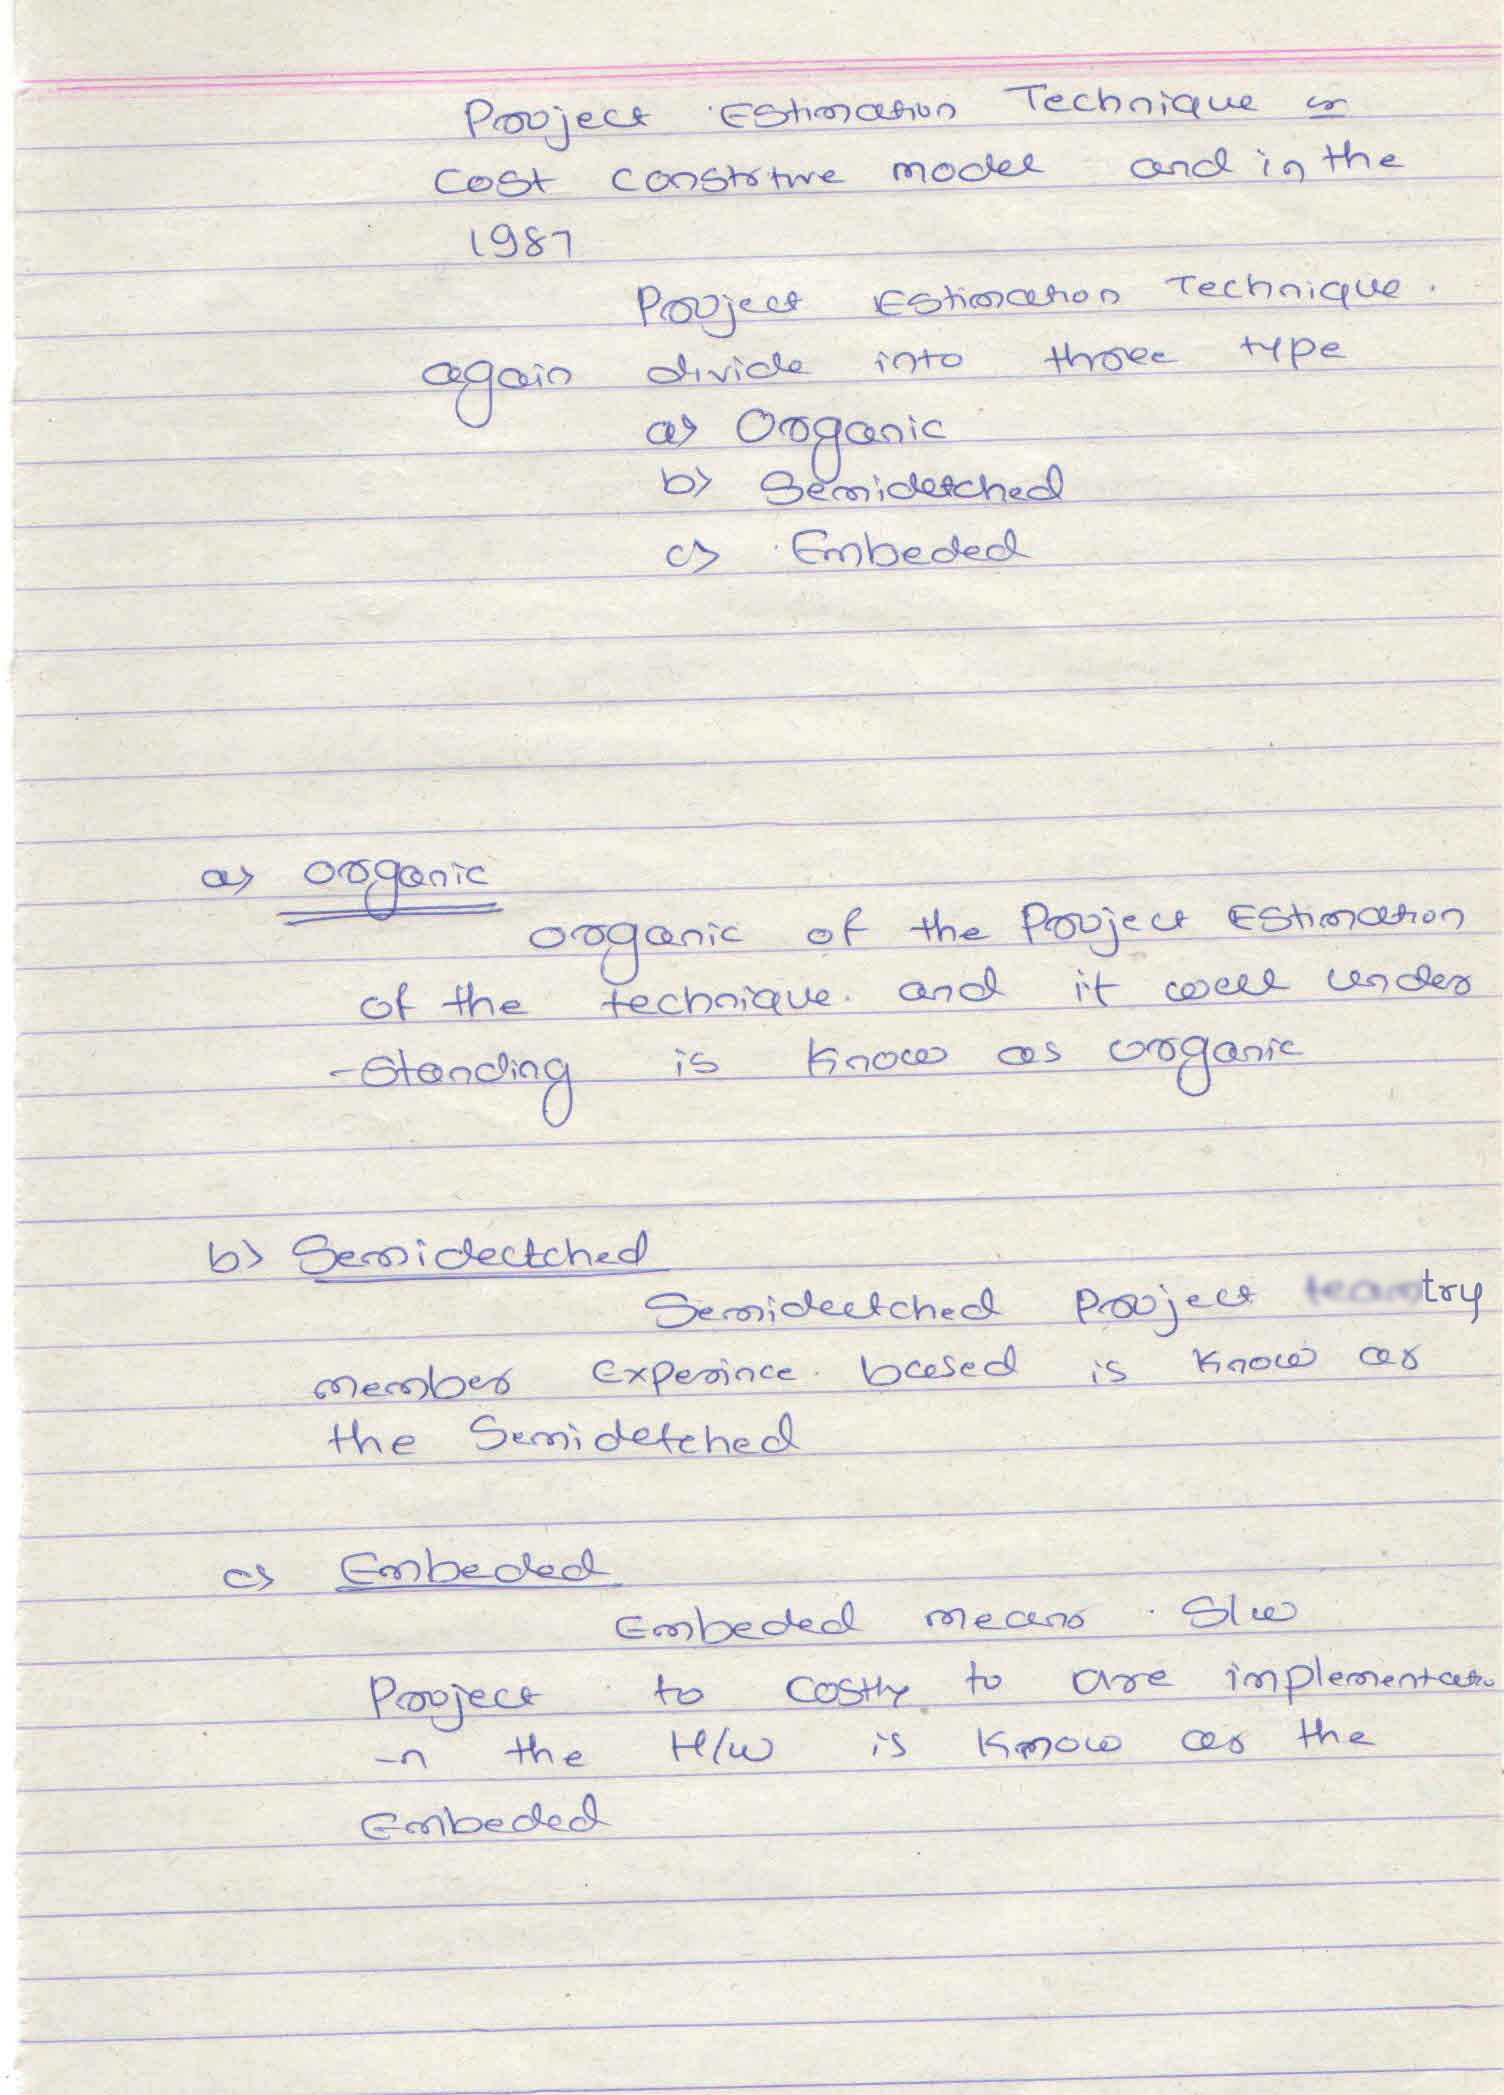 Project Estimation Technique is
cost constrtive model and in the
1987
Project Estimation Technique.
again divide into three type
a> Organic
b> Semidetched
c> Embeded
a> organic
organic of the Project Estimation
of the technique. and it well under
-standing is know as organic
b> Semidectched
Semidectched Project try
member Experince. based is know as
the Semidetched
c> Embeded
Embeded means S/w
Project to costly to are implementatio
-n the H/w is know as the
Embeded